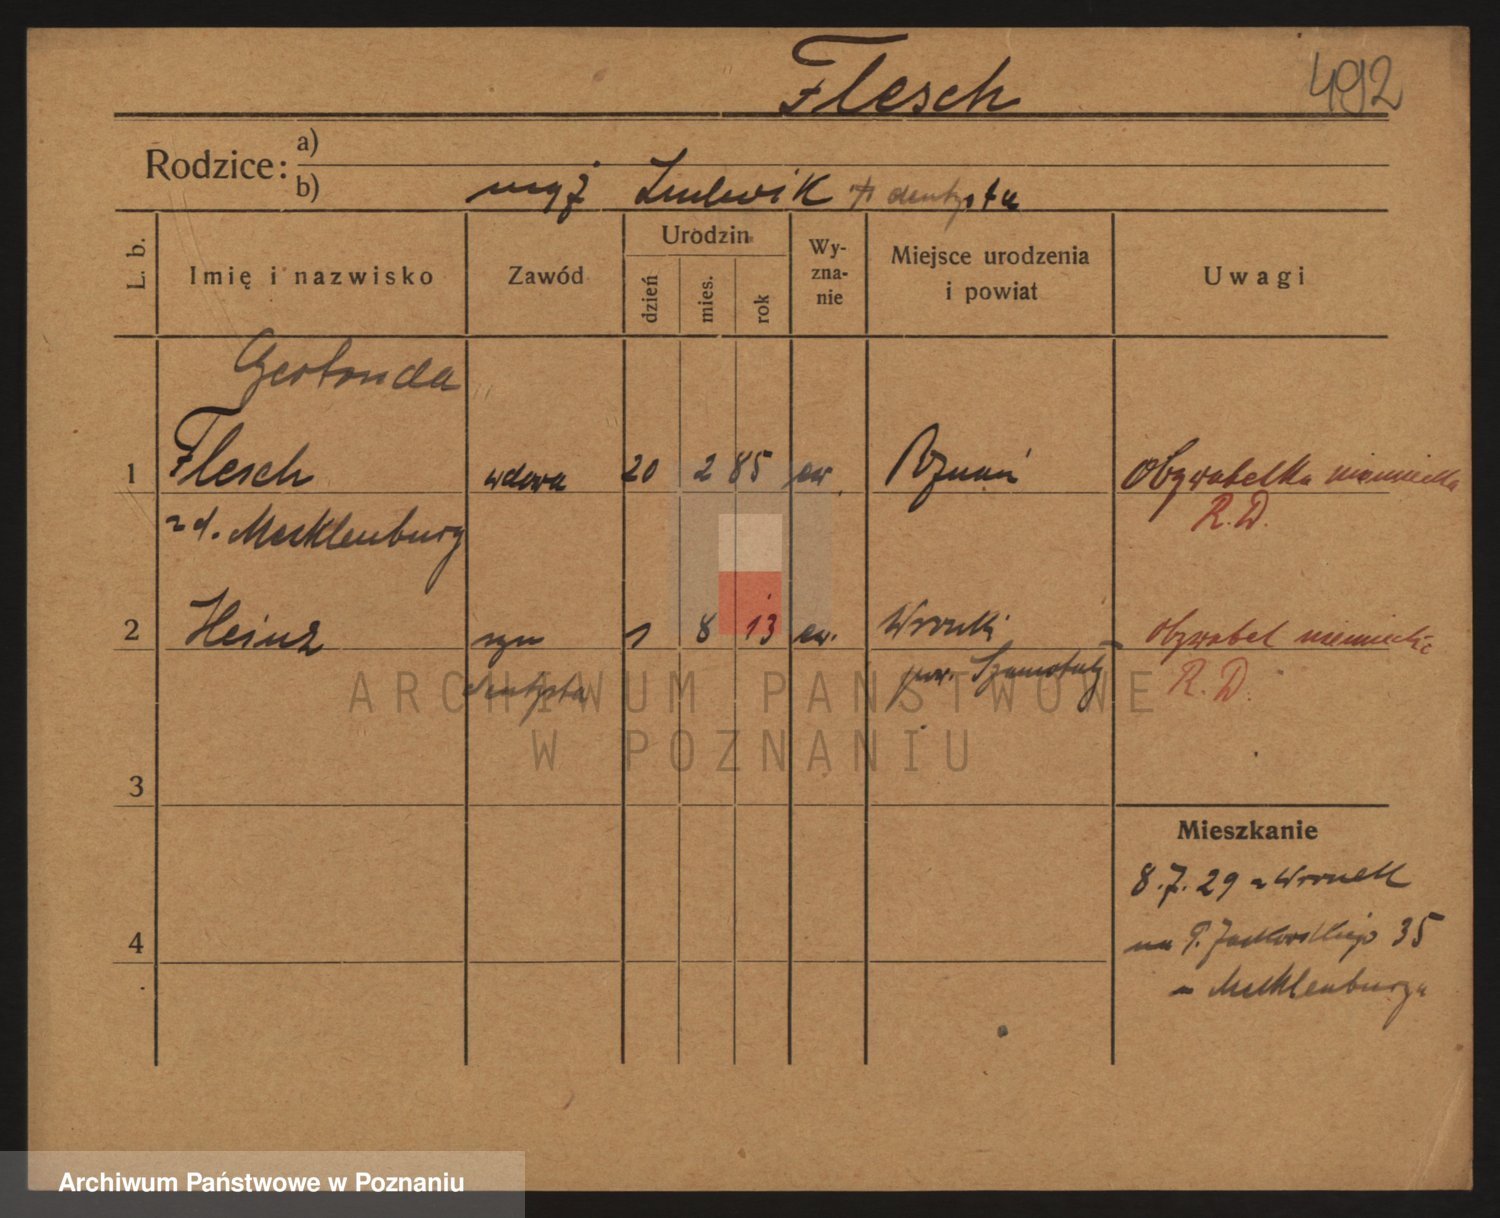 Flesch
492
Rodzice:
a)
b) mąż Ludwik dentysta
L. b.
Imię i nazwisko
Zawód
Urodzin
dzień
mies.
rok
Wy-
zna-
nie
Miejsce urodzenia
i powiat
Uwagi
Gertruda
1 Flesch wdowa 20 2 85 ew. Poznań Obywatelka niemiecka
z d. Mecklenburg R. D.
2 Heinz syn 1 8 13 ew. Wronki Obywatel niemiecki
dentysta pow. Szamotuły R. D.
3
Mieszkanie
8.7.29 z Wronek
4 na P. Jackowskiego 35
u Mecklenburga
ARCHIWUM PAŃSTWOWE
W POZNANIU
Archiwum Państwowe w Poznaniu